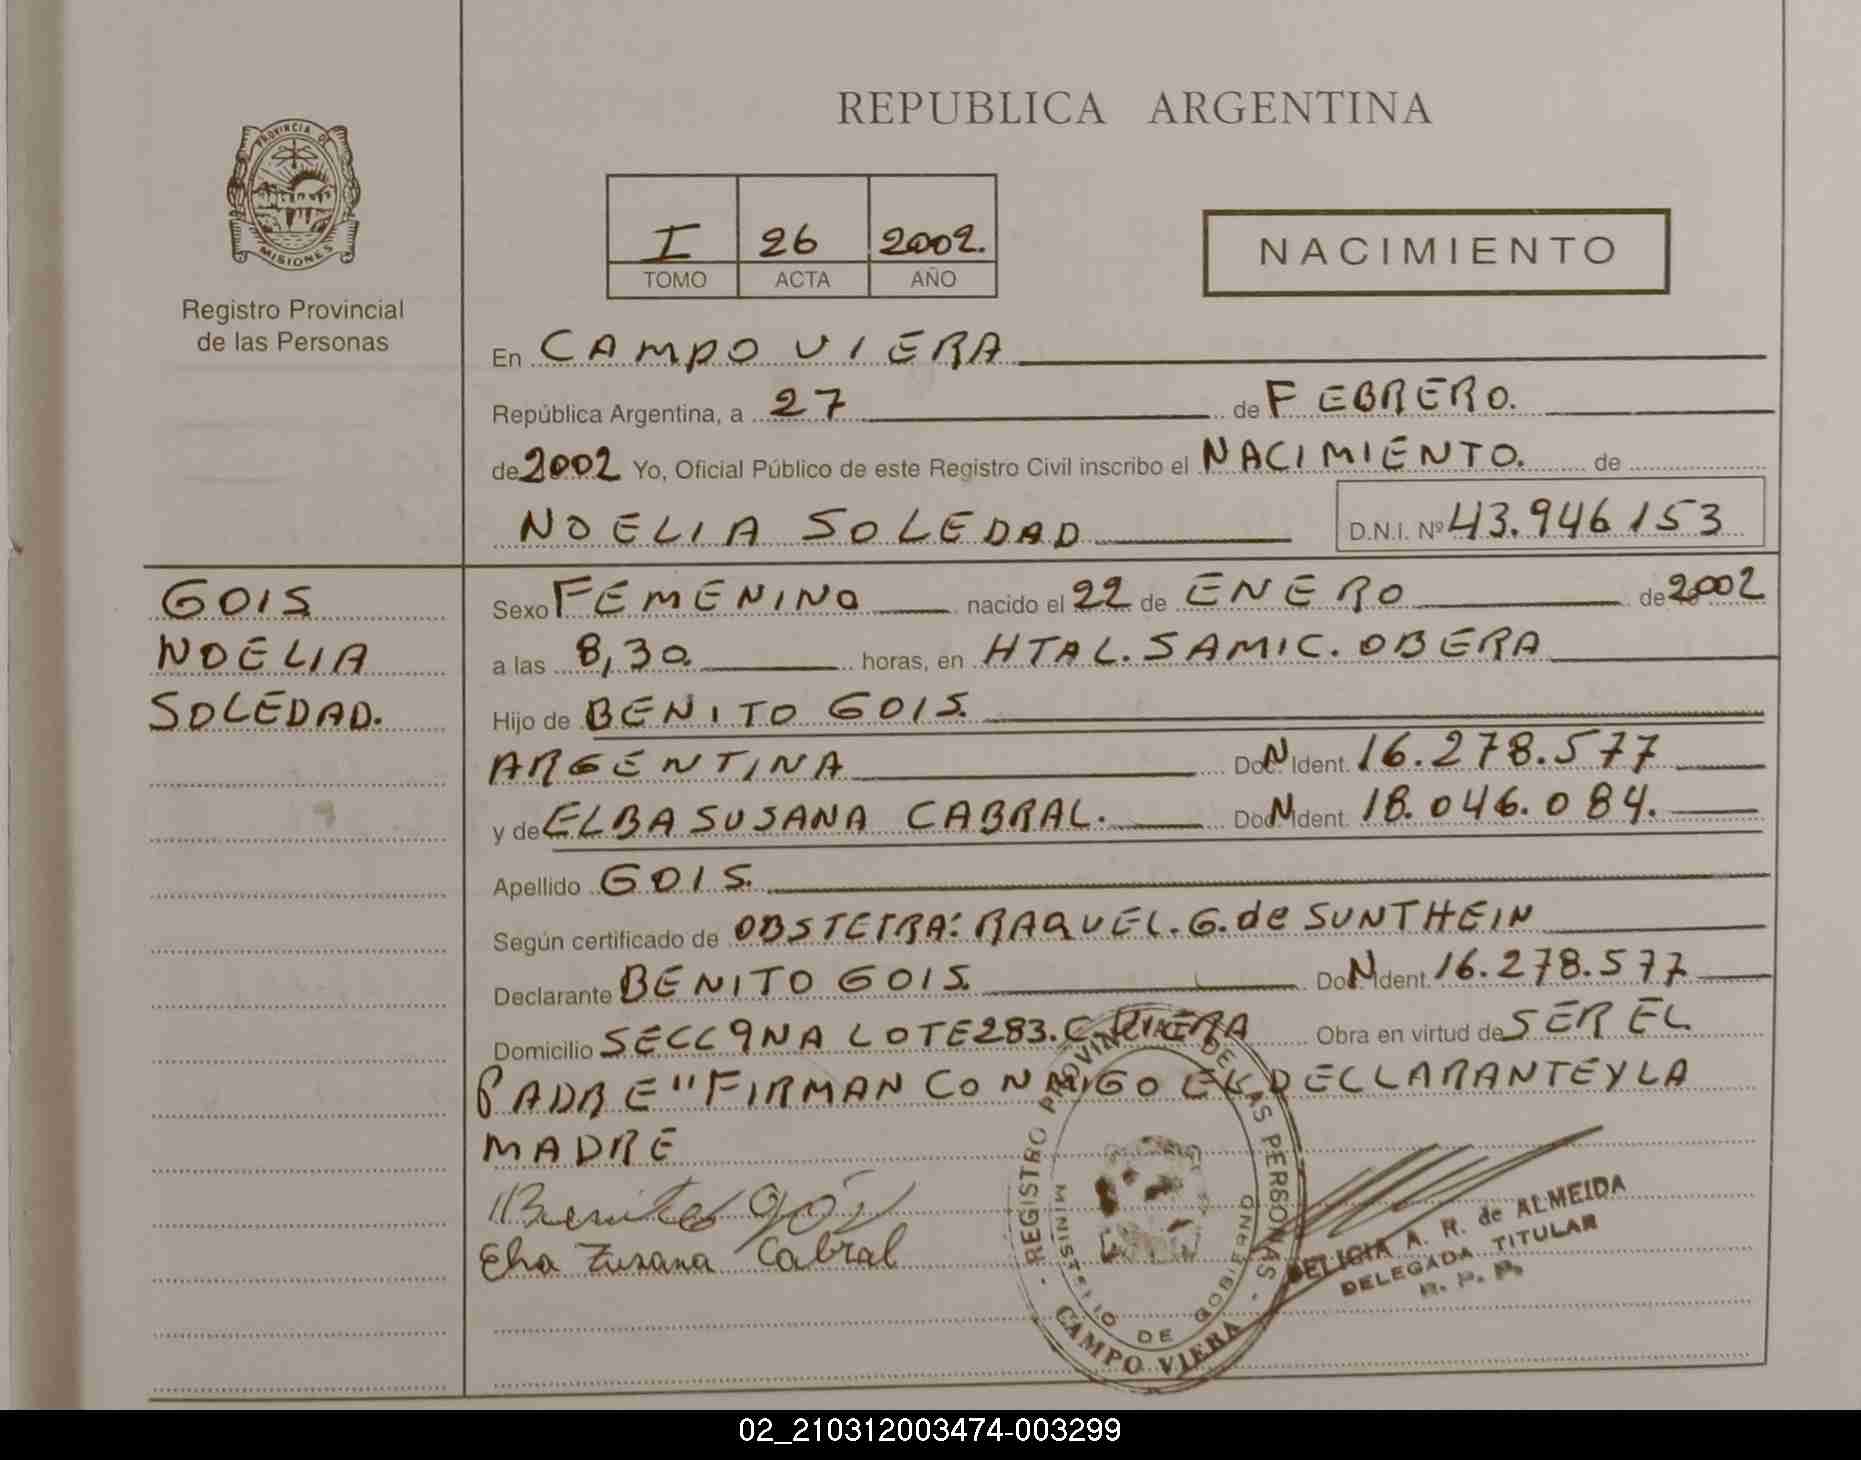 REPUBLICA ARGENTINA
PROVINCIA DE
MISIONES
Registro Provincial
de las Personas
I 26 2002.
TOMO ACTA AÑO
NACIMIENTO
En CAMPO VIERA
República Argentina, a 27 de FEBRERO.
de 2002 Yo, Oficial Público de este Registro Civil inscribo el NACIMIENTO. de
NOELIA SOLEDAD D.N.I. Nº 43.946153
GOIS
NOELIA
SOLEDAD.
Sexo FEMENINO nacido el 22 de ENERO de 2002
a las 8,30 horas, en HTAL. SAMIC. OBERA
Hijo de BENITO GOIS.
ARGENTINA Doc. N Ident. 16.278.577
y de ELBA SUSANA CABRAL. Doc. N Ident. 18.046.084.
Apellido GOIS.
Según certificado de OBSTETRA: RAQUEL. G. de SUNTHEIN
Declarante BENITO GOIS. Doc. N Ident. 16.278.577
Domicilio SECC 9NA LOTE 283. C. VIERA Obra en virtud de SER EL
PADRE "FIRMAN CONMIGO EL DECLARANTE Y LA
MADRE
Benito Gois
Elva Zusana Cabral
REGISTRO PROVINCIAL DE LAS PERSONAS
MINISTERIO DE GOBIERNO
CAMPO VIERA
FELICIA A. R. de ALMEIDA
DELEGADA TITULAR
R. P. P.
02_210312003474-003299